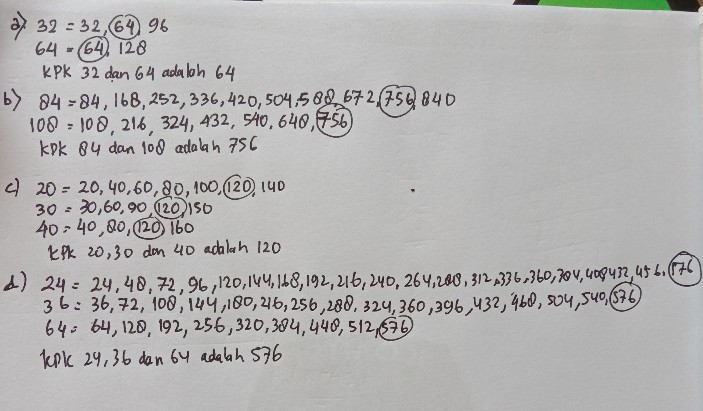 a) 32 = 32, 64, 96
64 = 64, 128
KPK 32 dan 64 adalah 64
b) 84 = 84, 168, 252, 336, 420, 504, 588, 672, 756, 840
108 = 108, 216, 324, 432, 540, 648, 756
KPK 84 dan 108 adalah 756
c) 20 = 20, 40, 60, 80, 100, 120, 140
30 = 30, 60, 90, 120, 150
40 = 40, 80, 120, 160
KPK 20, 30 dan 40 adalah 120
d) 24 = 24, 48, 72, 96, 120, 144, 168, 192, 216, 240, 264, 288, 312, 336, 360, 384, 408 432, 456. 576
36 = 36, 72, 108, 144, 180, 216, 256, 288, 324, 360, 396, 432, 468, 504, 540, 576
64 = 64, 128, 192, 256, 320, 384, 448, 512, 576
KPK 24, 36 dan 64 adalah 576